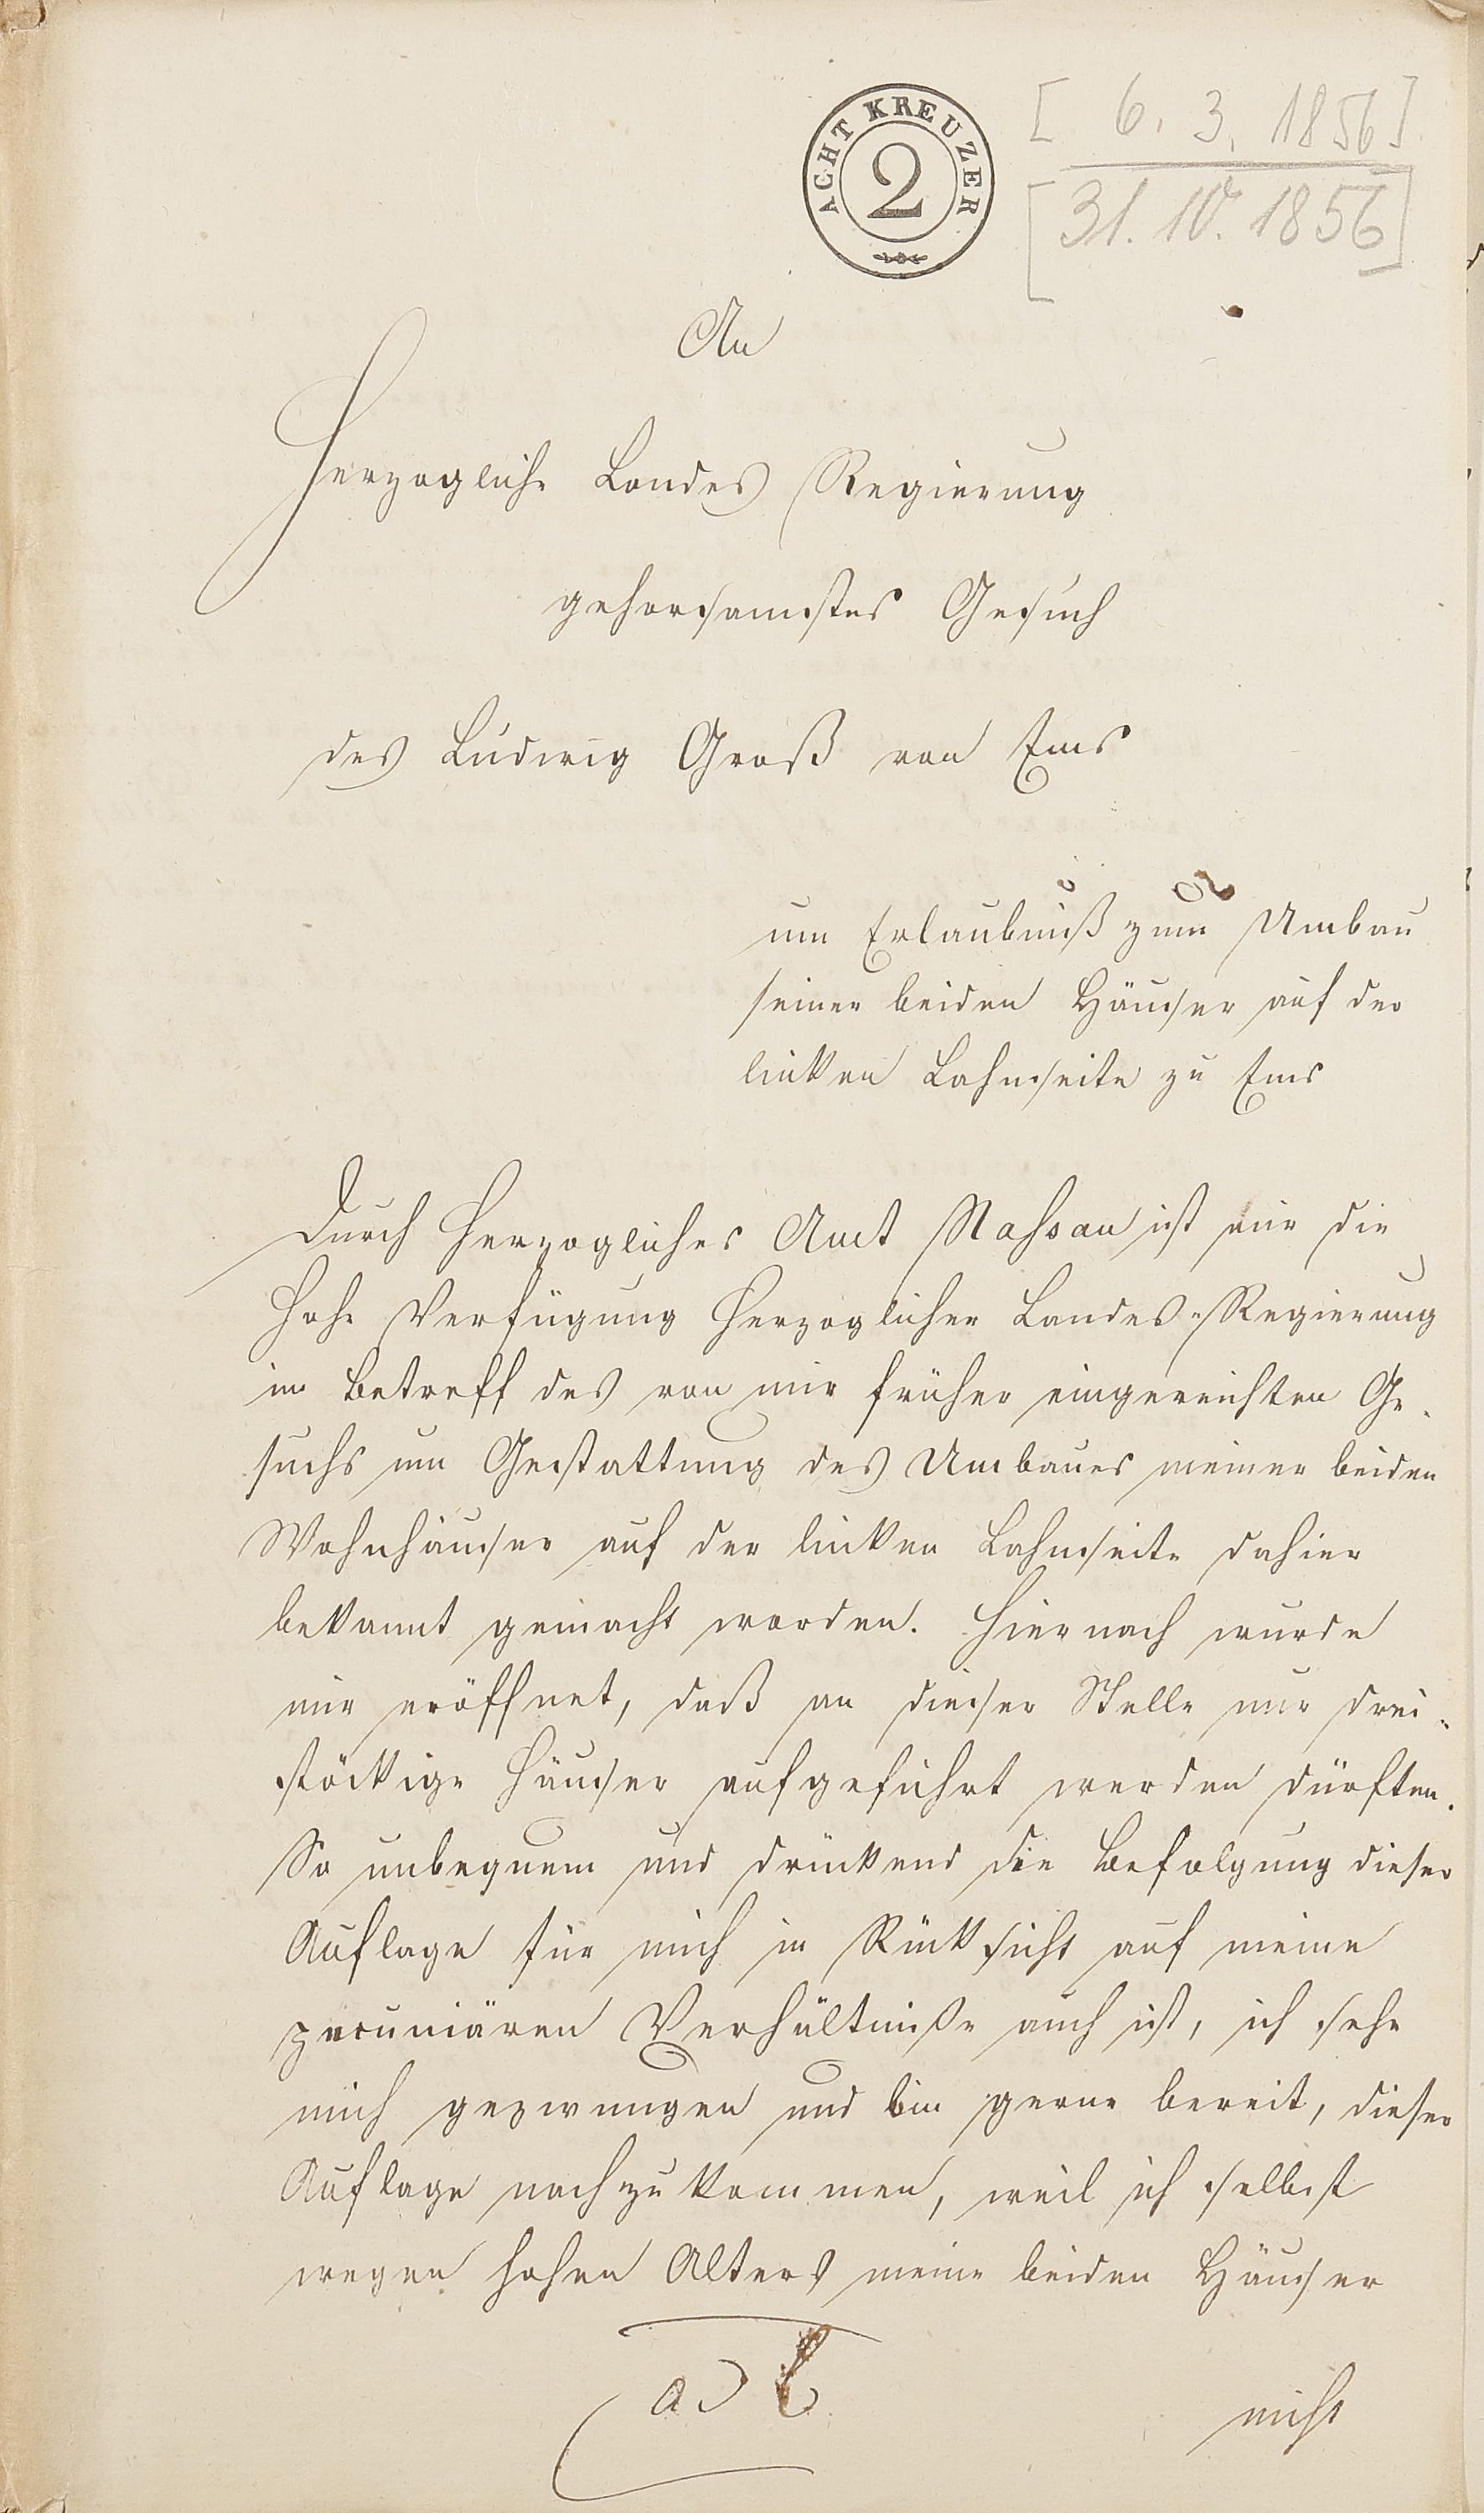 ACHT KREUZER
2
[ 6. 3. 1856 ]
[ 31. 10. 1856 ]
An
Herzogliche Landes Regierung
gehorsamstes Gesuch
des Ludwig Groß von Ems
um Erlaubniß zum Umbau
seiner beiden Häuser auf der
linken Lahnseite zu Ems
Durch Herzogliches Amt Nassau ist mir die
hohe Verfügung Herzoglicher Landes-Regierung
in Betreff des von mir früher eingereichten Ge-
suchs um Gestattung des Umbaues meiner beiden
Wohnhäuser auf der linken Lahnseite dahier
bekannt gemacht worden. Hiernach wurde
mir eröffnet, daß an dieser Stelle nur drei-
stöckige Häuser aufgeführt werden dürften.
So unbequem und drückend die Befolgung dieser
Auflage für mich in Rücksicht auf meine
pecuniären Verhältniße auch ist, ich sehe
mich gezwungen und bin gerne bereit, dieser
Auflage nachzukommen, weil ich selbst
wegen hohen Alters meine beiden Häuser
nicht